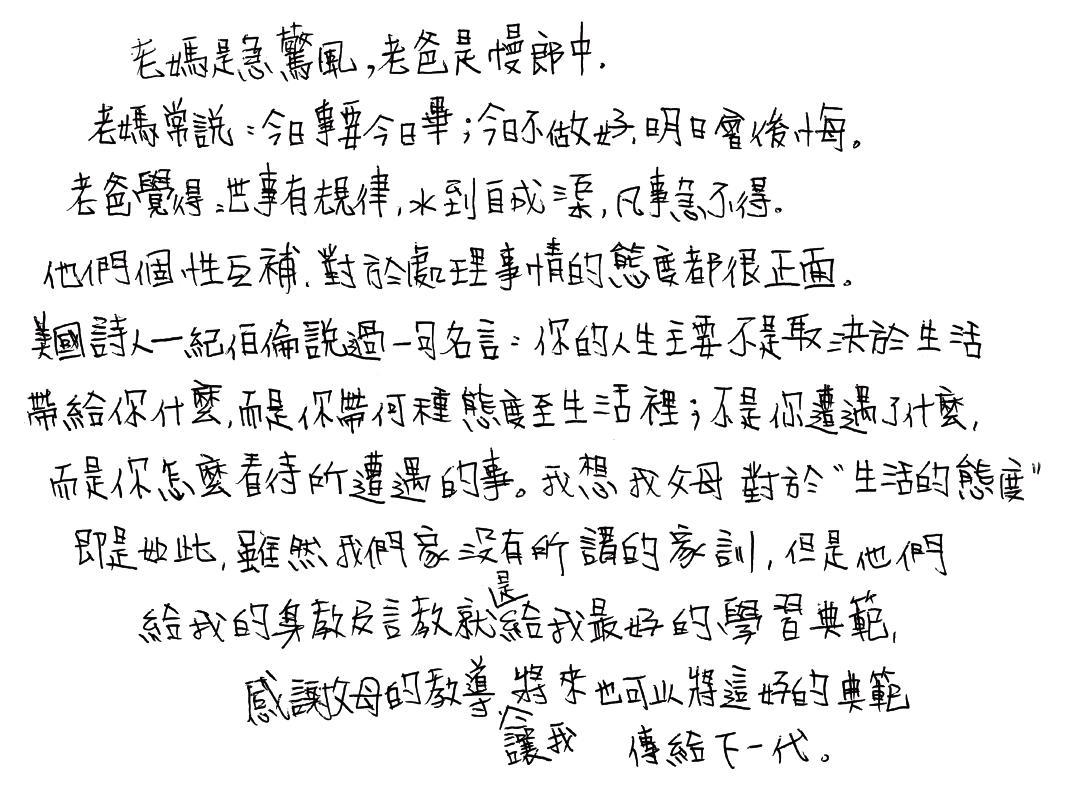 老媽是急驚風,老爸是慢郎中.
老媽常說:今日事要今日畢;今日不做好,明日會後悔。
老爸覺得:世事有規律,水到自成渠,凡事急不得。
他們個性互補,對於處理事情的態度都很正面。
美國詩人一紀伯倫說過一句名言:你的人生主要不是取決於生活
帶給你什麼,而是你帶何種態度至生活裡;不是你遭遇了什麼,
而是你怎麼看待所遭遇的事。我想我父母對於"生活的態度"
即是如此,雖然我們家沒有所謂的家訓,但是他們
給我的身教及言教就是給我最好的學習典範,
感謝父母的教導,讓我將來也可以將這好的典範
傳給下一代。